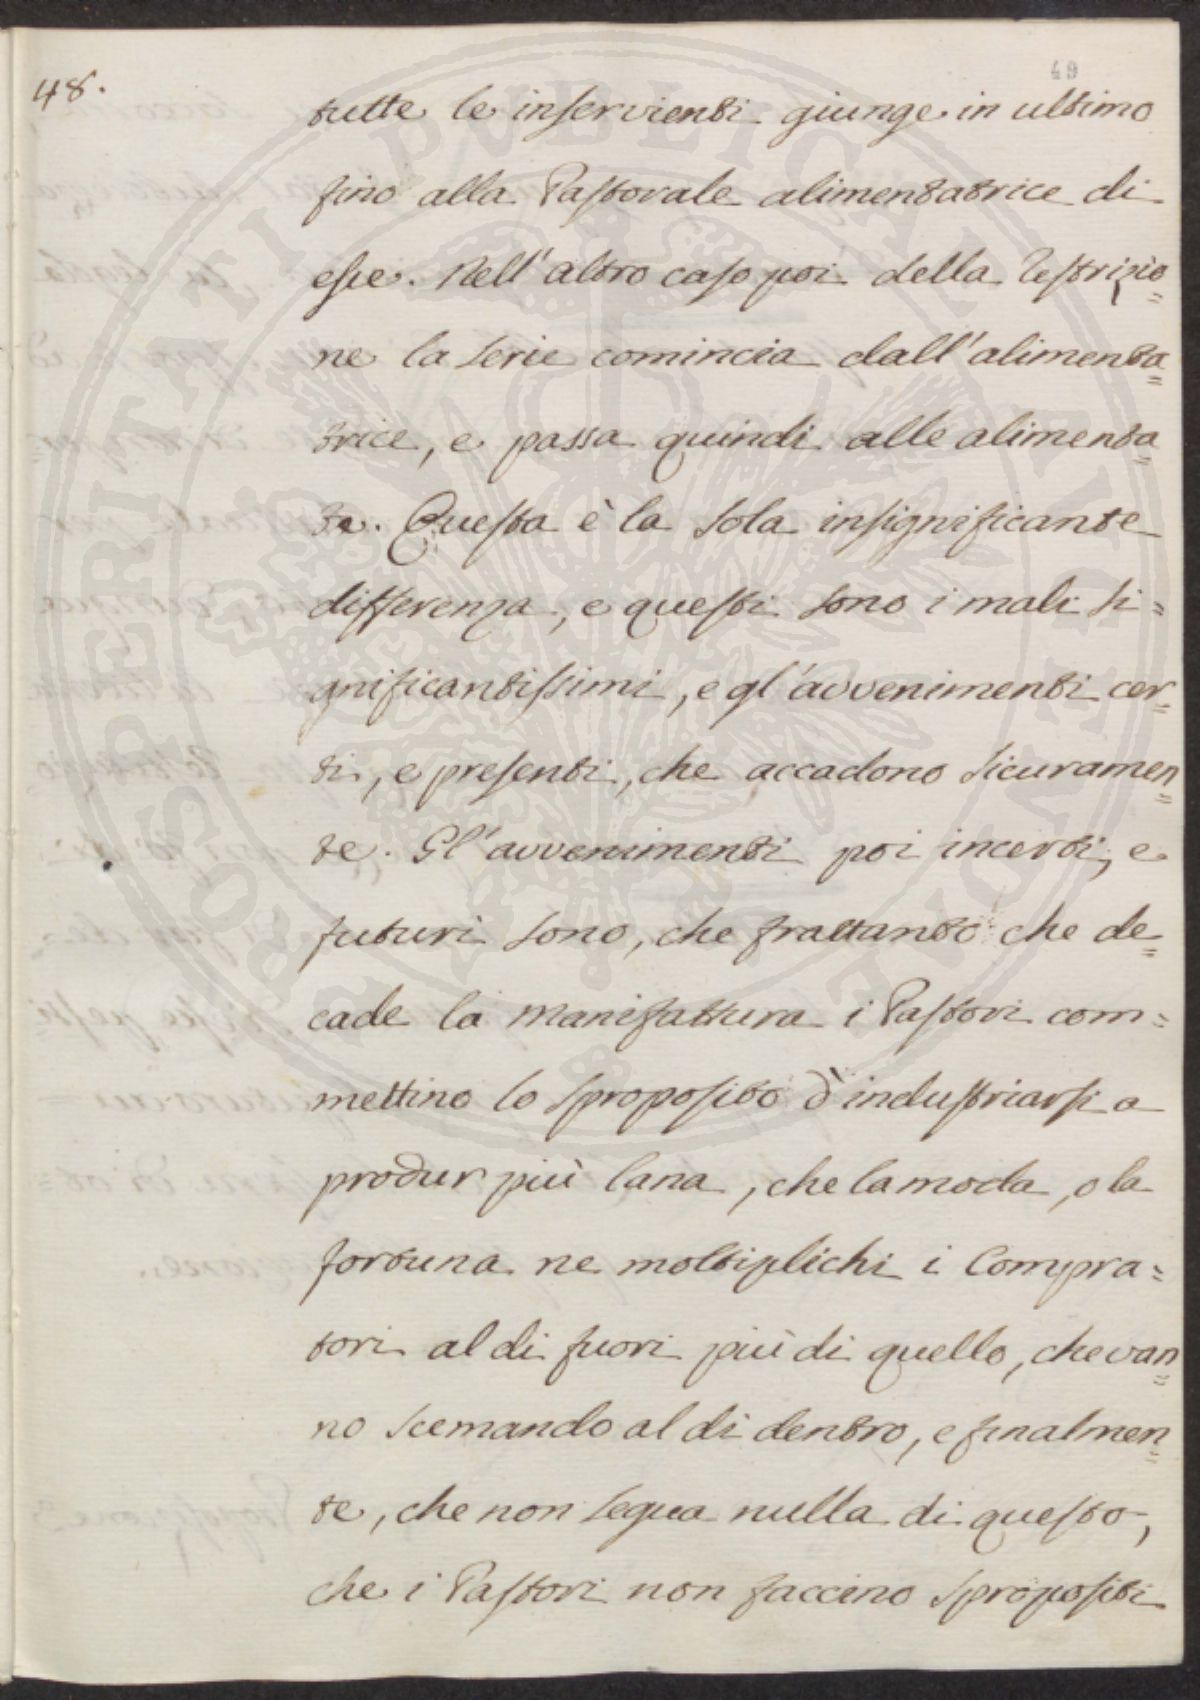 49
48.
tutte le inservienti giunge in ultimo
fino alla Pastorale alimentatrice di
esse. Nell'altro caso poi della restrizio=
ne la serie comincia dall'alimenta=
trice, e passa quindi alle alimenta=
te. Questa è la sola insignificante
differenza, e questi sono i mali si=
gnificantissimi, e gl'avvenimenti cer=
ti, e presenti, che accadono sicuramen=
te. Gl'avvenimenti poi incerti, e
futuri sono, che frattanto che de=
cade la manifattura i Pastori com=
mettino lo sproposito d'industriarsi a
produr più lana, che la moda, o la
fortuna ne moltiplichi i Compra=
tori al di fuori più di quello, che van=
no scemando al di dentro, e finalmen=
te, che non segua nulla di questo,
che i Pastori non faccino spropositi
PROSPERITATI PUBLICAE AUGENDAE